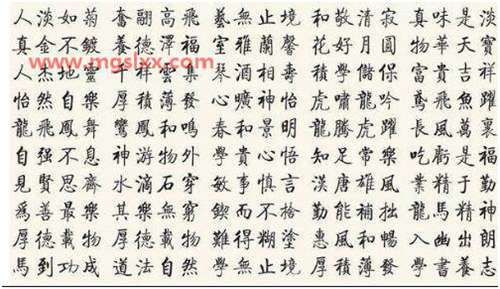 人淡如菊 奮翮高飛 藝無止境 和敬清寂 真味是淡
真金不鍍 養德澤福 室雅蘭馨 花好月圓 物華天寶
人杰地靈 千祥雲集 酒相壽 學儲保 富貴吉祥
怡然自樂 厚積薄發 心曠神怡 虎嘯龍吟 鳶飛魚躍
龍飛鳳舞 鸞鳳和鳴 春和景明 龍騰虎躍 長風萬裏
自强不息 神游物外 學貴心悟 知足常樂 吃虧是福
見賢思齊 水滴石穿 敏事慎言 漢唐雄風 業精于勤
爲善最樂 其樂無窮 鍥而不捨 勤能補拙 龍馬精神
厚德載物 厚德載物 難得糊塗 惠風和暢 入幽出朗
馬到功成 道法自然 學無止境 厚積薄發 學書養志
www.mgslxx.com